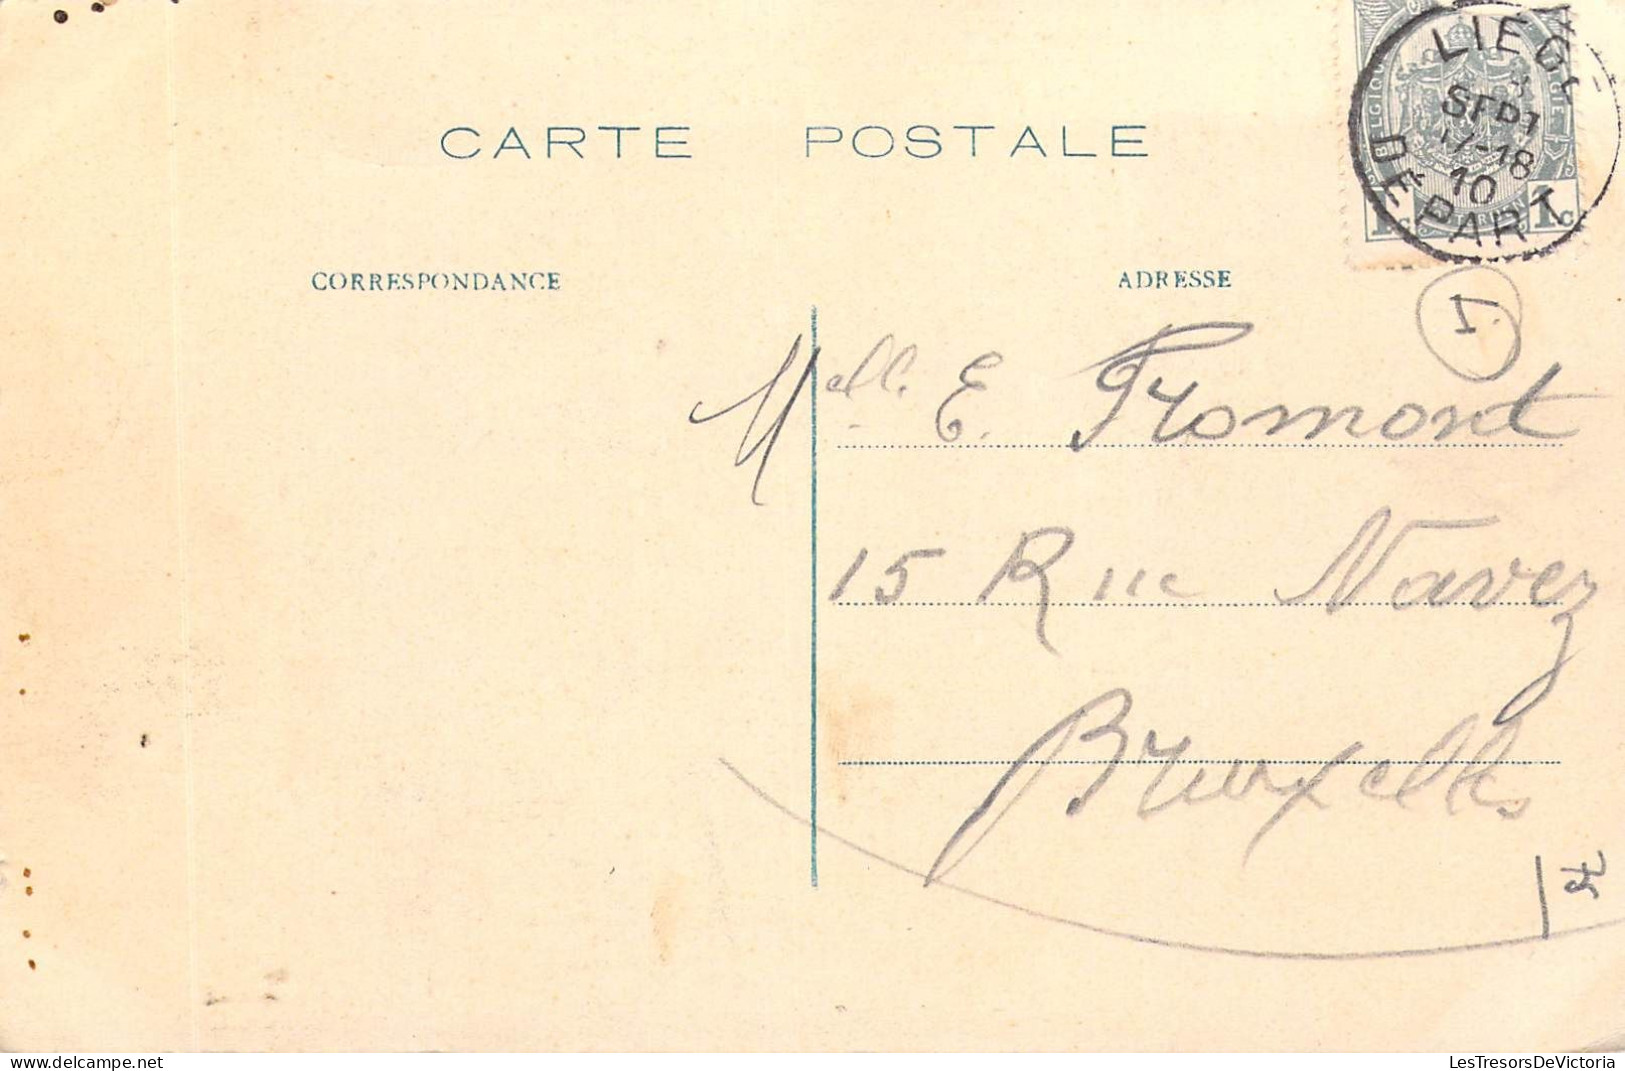 LIÉG
8
SEPT
17-18
10
DÉPART
BELGIQUE
1c 1c
CARTE POSTALE
CORRESPONDANCE
ADRESSE
1
Melle. E. Fromont
15 Rue Navez
Bruxelles
delcampe.net
LesTresorsDeVictoria